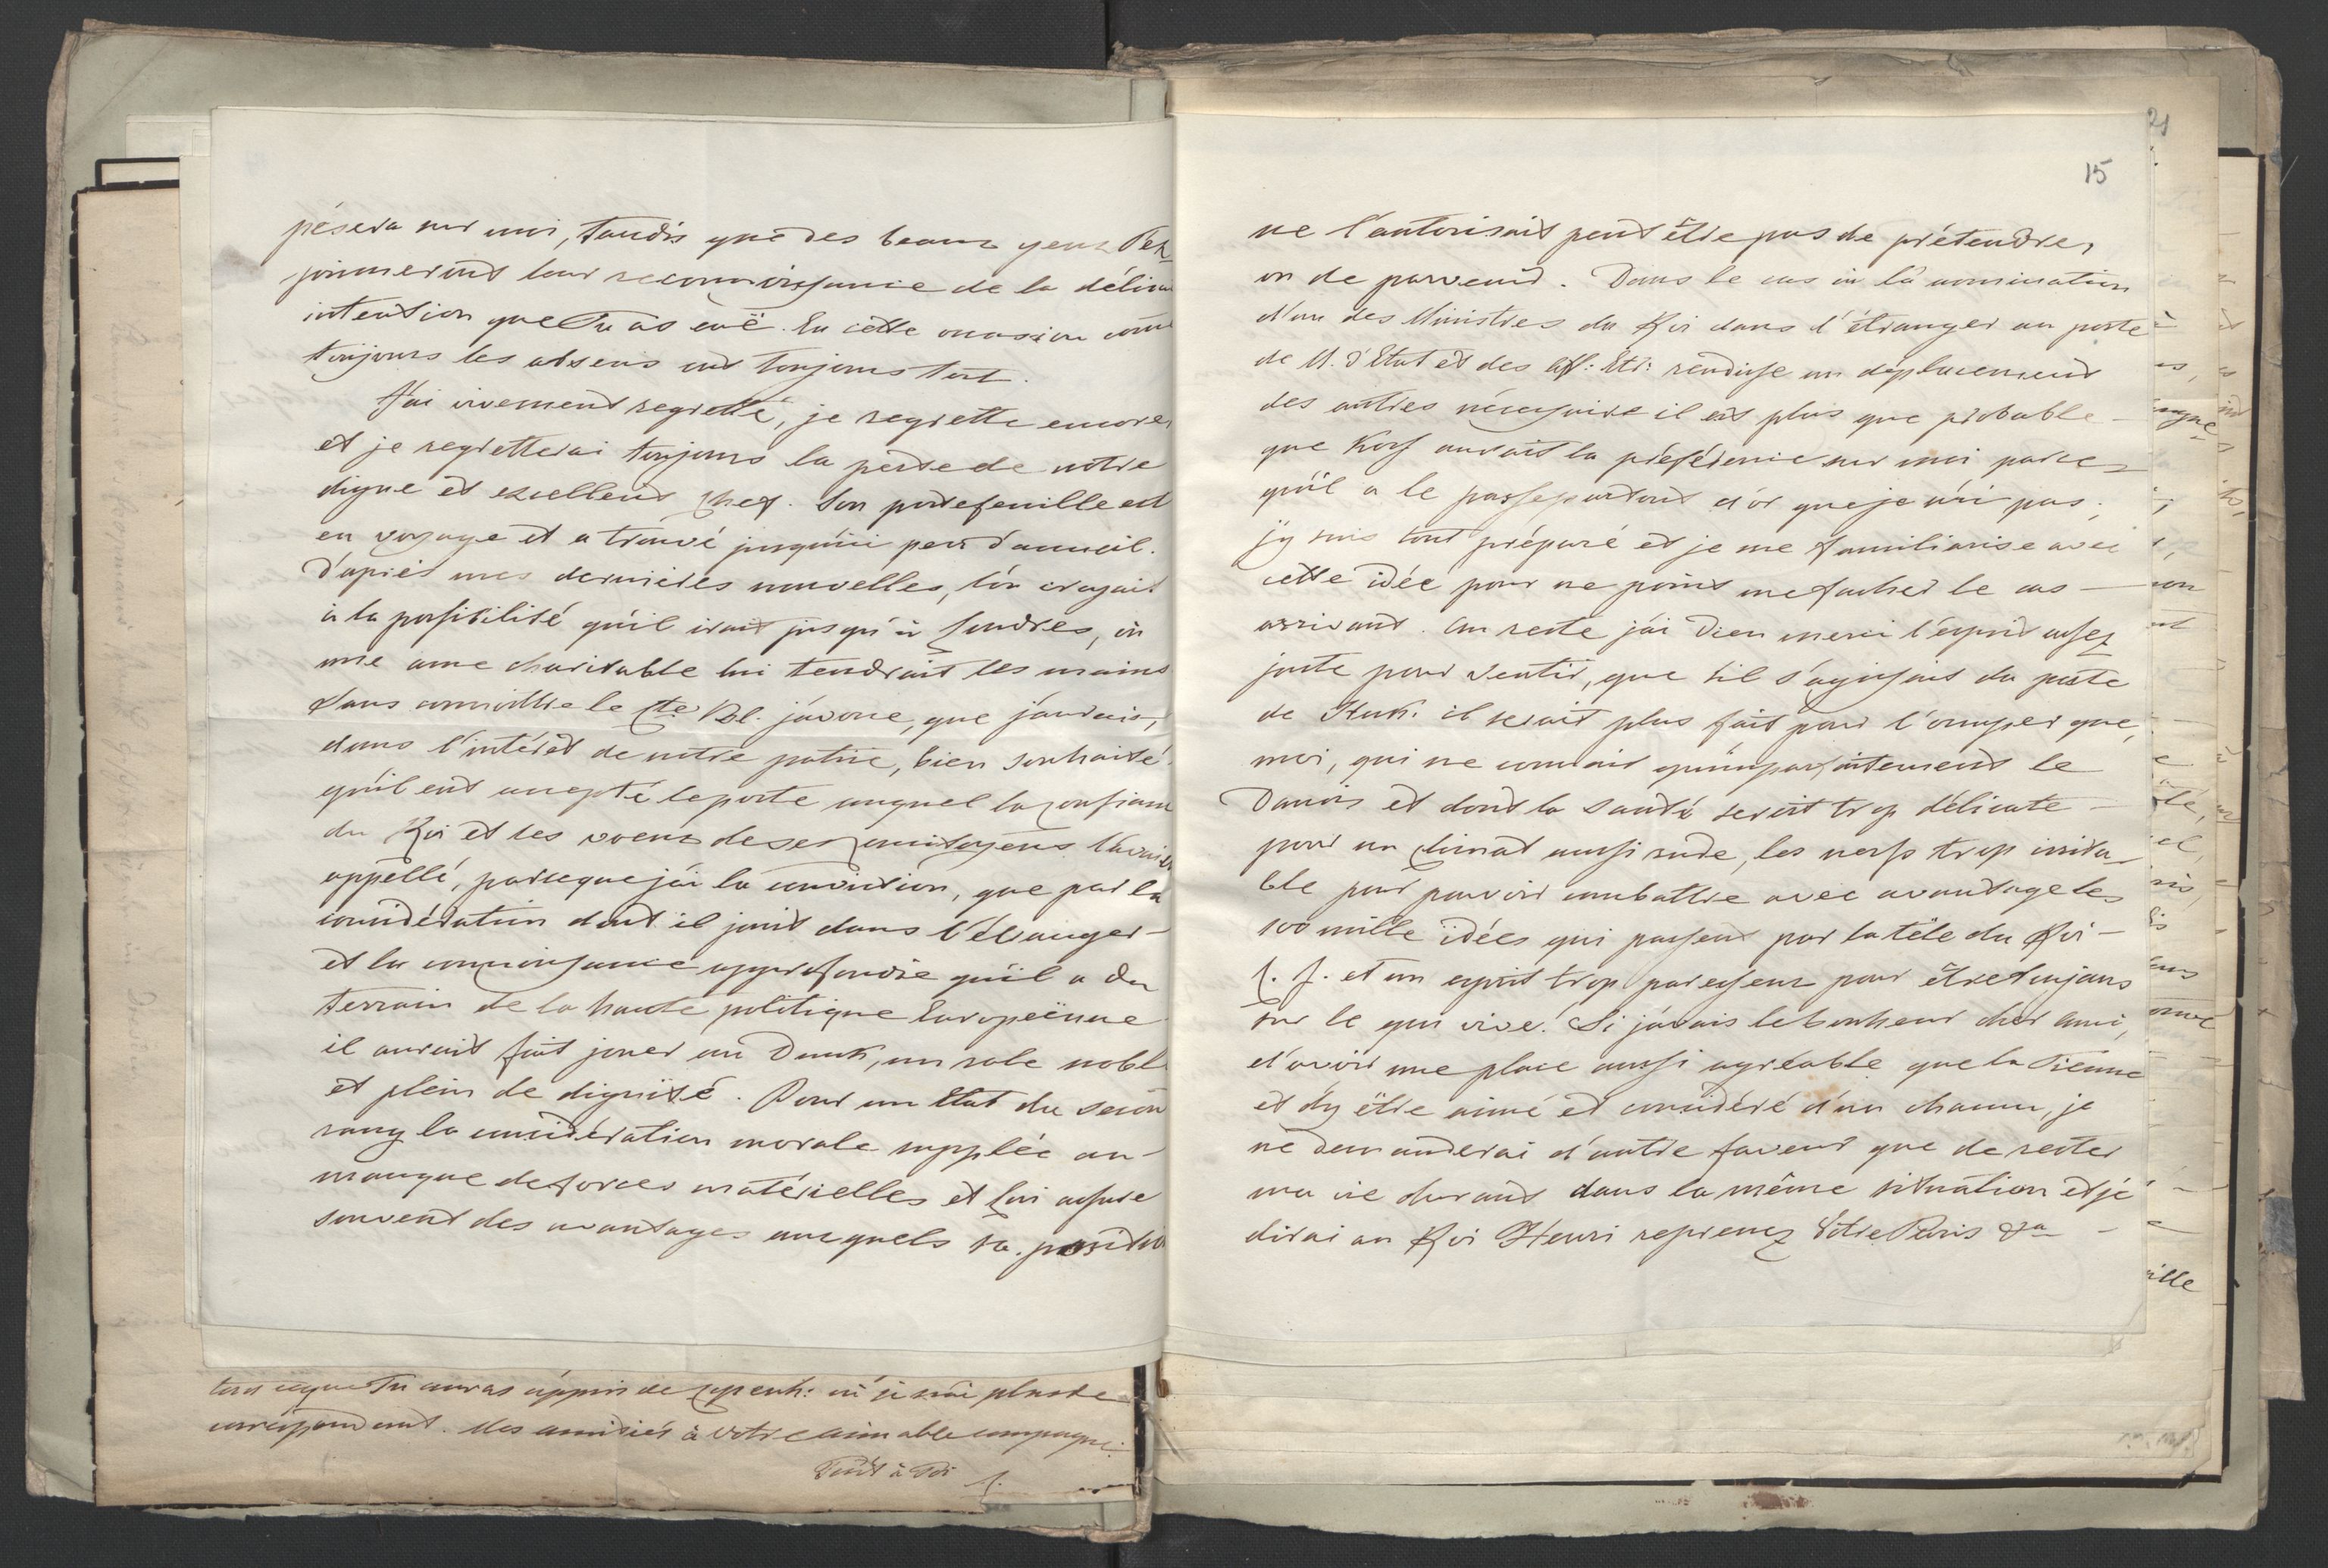 pésera sur moi, tandis que des beaux yeux T'ex-
primeront leur reconnoissance de la délicate
intention que Tu as euë. En cette occasion comme
toujours les absens ont toujours tort.
J'ai vivement regretté, je regrette encore,
et je regretterai toujours la perte de notre
digne et excellent chef. Son portefeuille est
en voyage et a trouvé jusqu'ici peu d'accueil.
D'après mes dernières nouvelles, l'on croyait
à la possibilité qu'il irait jusqu'à Londres, où
une ame charitable lui tendrait les mains
sans connoitre le Cte Bl. j'avoue, que j'aurais,
dans l'intérêt de notre patrie, bien souhaité
qu'il eut accepté le poste auquel la confiance
du Roi et les voeux de ses concitoyens l'avaient
appellé, parceque j'ai la conviction, que par la
considération dont il jouit dans l'étranger
et la connoissance approfondie qu'il a du
terrain de la haute politique Européenne
il aurait fait jouer au Dank, un role noble
et plein de dignité. Pour un Etat du second
rang la considération morale supplée au
manque de forces matérielles et lui assure
souvent des avantages auxquels sa position
tout ceque Tu auras appris de Copenh: où je n'ai plus de
correspondant. Mes amitiés à votre aimable compagne.
Tout à Toi
21
15
ne l'autorisait peut être pas de prétendre,
ou de parvenir. Dans le cas où la nomination
d'un des Ministres du Roi dans l'étranger au poste
de M. d'Etat et des Aff: Etr: rendisse un déplacement
des autres nécessaire il est plus que probable
que Korf aurait la préférence sur moi parce-
qu'il a le passepartout d'or que je n'ai pas;
j'y suis tout préparé et je me familiarise avec
cette idée pour ne point me facher le cas
arrivant. Au reste j'ai Dieu merci l'esprit assez
juste pour sentir, que s'il s'agissait du poste
de Stock. il serait plus fait pour l'occuper que
moi, qui ne connais qu'imparfaitement le
Danois et dont la santé serait trop délicate
pour un climat aussi rude, les nerfs trop irrita-
ble pour pouvoir combattre avec avantage les
100 mille idées qui passent par la tête du Roi
et un esprit trop paresseux pour être toujours
sur le qui vive! Si j'avais le bonheur cher Ami,
d'avoir une place aussi agréable que la Tienne
et d'y être aimé et considéré d'un chacun, je
ne demanderai d'autre faveur que de rester
ma vie durant dans la même situation et je
dirai au Roi Henri reprenez Votre Paris &a